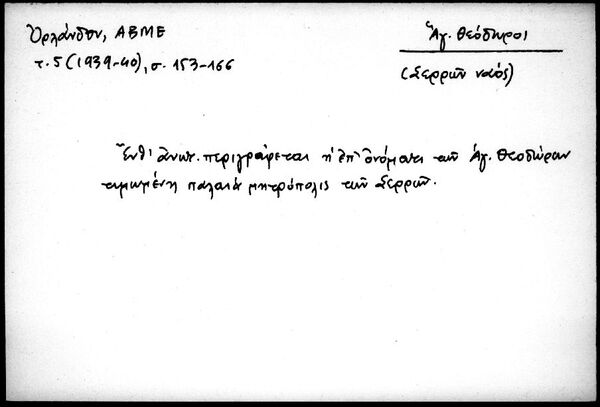 Ὀρλάνδου, ΑΒΜΕ
τ. 5 (1939-40), σ. 153-166
Ἅγ. Θεόδωροι
(Σερρῶν ναός)
Ἔνθ' ἀνωτ. περιγράφεται ἡ ἐπ' ὀνόματι τῶν Ἁγ. Θεοδώρων
τιμωμένη παλαιὰ μητρόπολις τῶν Σερρῶν.